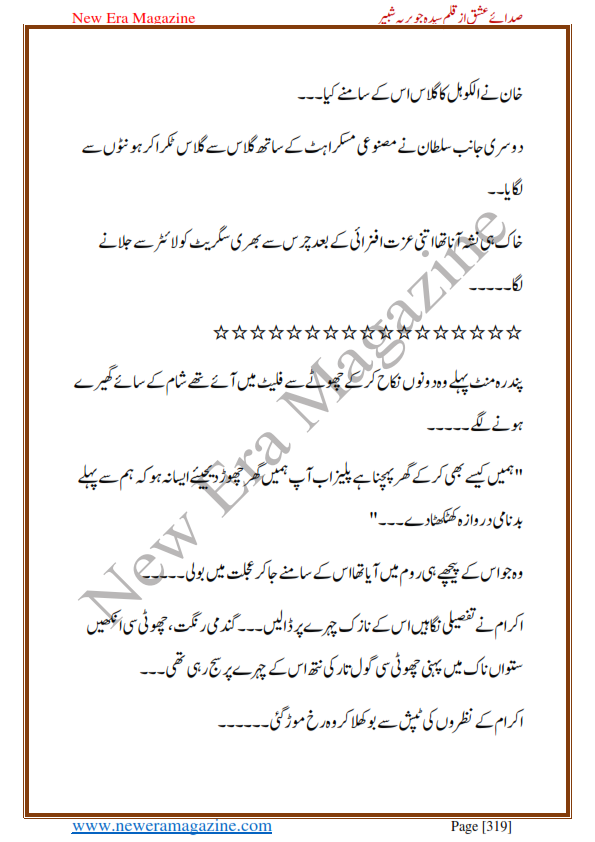 New Era Magazine صدائے عشق از قلم سیدہ جویریہ شبیر
خان نے الکوہل کا گلاس اس کے سامنے کیا۔۔۔
دوسری جانب سلطان نے مصنوعی مسکراہٹ کے ساتھ گلاس سے گلاس ٹکرا کر ہونٹوں سے
لگایا۔۔
خاک ہی نشہ آنا تھا اتنی عزت افزائی کے بعد چرس سے بھری سگریٹ کو لائٹر سے جلانے
لگا۔۔۔۔۔
☆☆☆☆☆☆☆☆☆☆☆☆☆☆☆☆☆
پندرہ منٹ پہلے وہ دونوں نکاح کر کے چھوٹے سے فلیٹ میں آئے تھے شام کے سائے گھیرے
ہونے لگے۔۔۔۔۔
"ہمیں کیسے بھی کر کے گھر پہچنا ہے پلیز اب آپ ہمیں گھر چھوڑ دیجیئے ایسا نہ ہو کہ ہم سے پہلے
بدنامی دروازہ کھٹکھٹا دے۔۔۔"
وہ جو اس کے پیچھے ہی روم میں آیا تھا اس کے سامنے جا کر عجلت میں بولی۔۔۔۔۔
اکرام نے تفصیلی نگاہیں اس کے نازک چہرے پر ڈالیں۔۔۔گندمی رنگت، چھوٹی سی انکھیں
ستواں ناک میں پہنی چھوٹی سی گول تار کی نتھ اس کے چہرے پر سج رہی تھی۔۔۔
اکرام کے نظروں کی ٹپش سے بوکھلا کر وہ رخ موڑ گئی۔۔۔۔۔۔
New Era Magazine
www.neweramagazine.com Page [319]